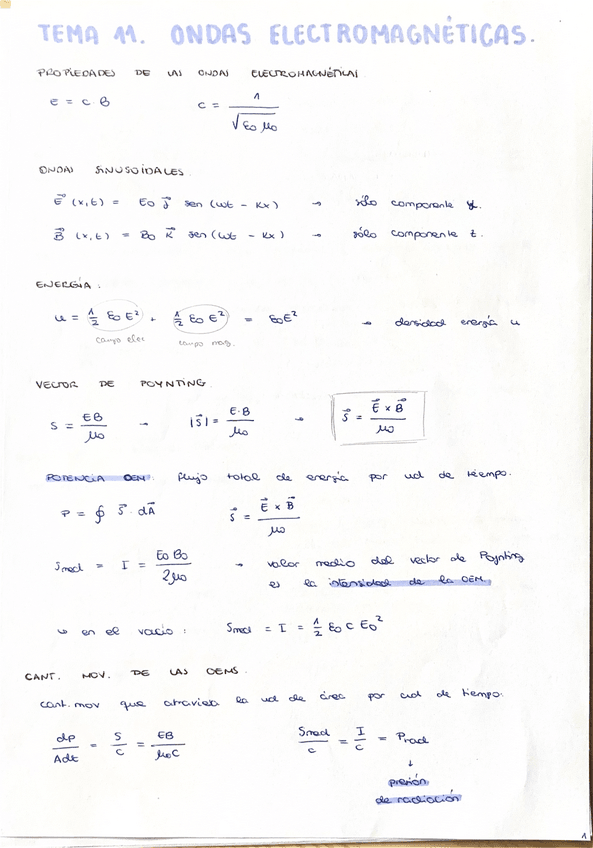 TEMA 11. ONDAS ELECTROMAGNÉTICAS.
PROPIEDADES DE LAS ONDAS ELECTROMAGNÉTICAS
E = c · B     c = 1 / √(ε0 μ0)
ONDAS SINUSOIDALES
E⃗ (x,t) = E0 j⃗ sen (ωt - Kx) → sólo componente y.
B⃗ (x,t) = B0 K⃗ sen (ωt - Kx) → sólo componente z.
ENERGÍA.
u = 1/2 ε0 E² + 1/2 ε0 E² = ε0E² → densidad energía u
campo elec     campo mag.
VECTOR DE POYNTING.
S = EB/μ0 → |S⃗| = E·B/μ0 → S⃗ = E⃗ × B⃗/μ0
POTENCIA OEM: flujo total de energía por ud de tiempo.
P = ∮ S⃗ · dA⃗     S⃗ = E⃗ × B⃗/μ0
Smed = I = E0 B0/2μ0 → valor medio del vector de Poynting
es la intensidad de la OEM.
↳ en el vacío: Smed = I = 1/2 ε0 c E0²
CANT. MOV. DE LAS OEMS.
cant. mov que atraviesa la ud de área por ud de tiempo:
dp/Adt = S/c = EB/μ0C     Smed/c = I/c = Prad
↓
presión
de radiación
1